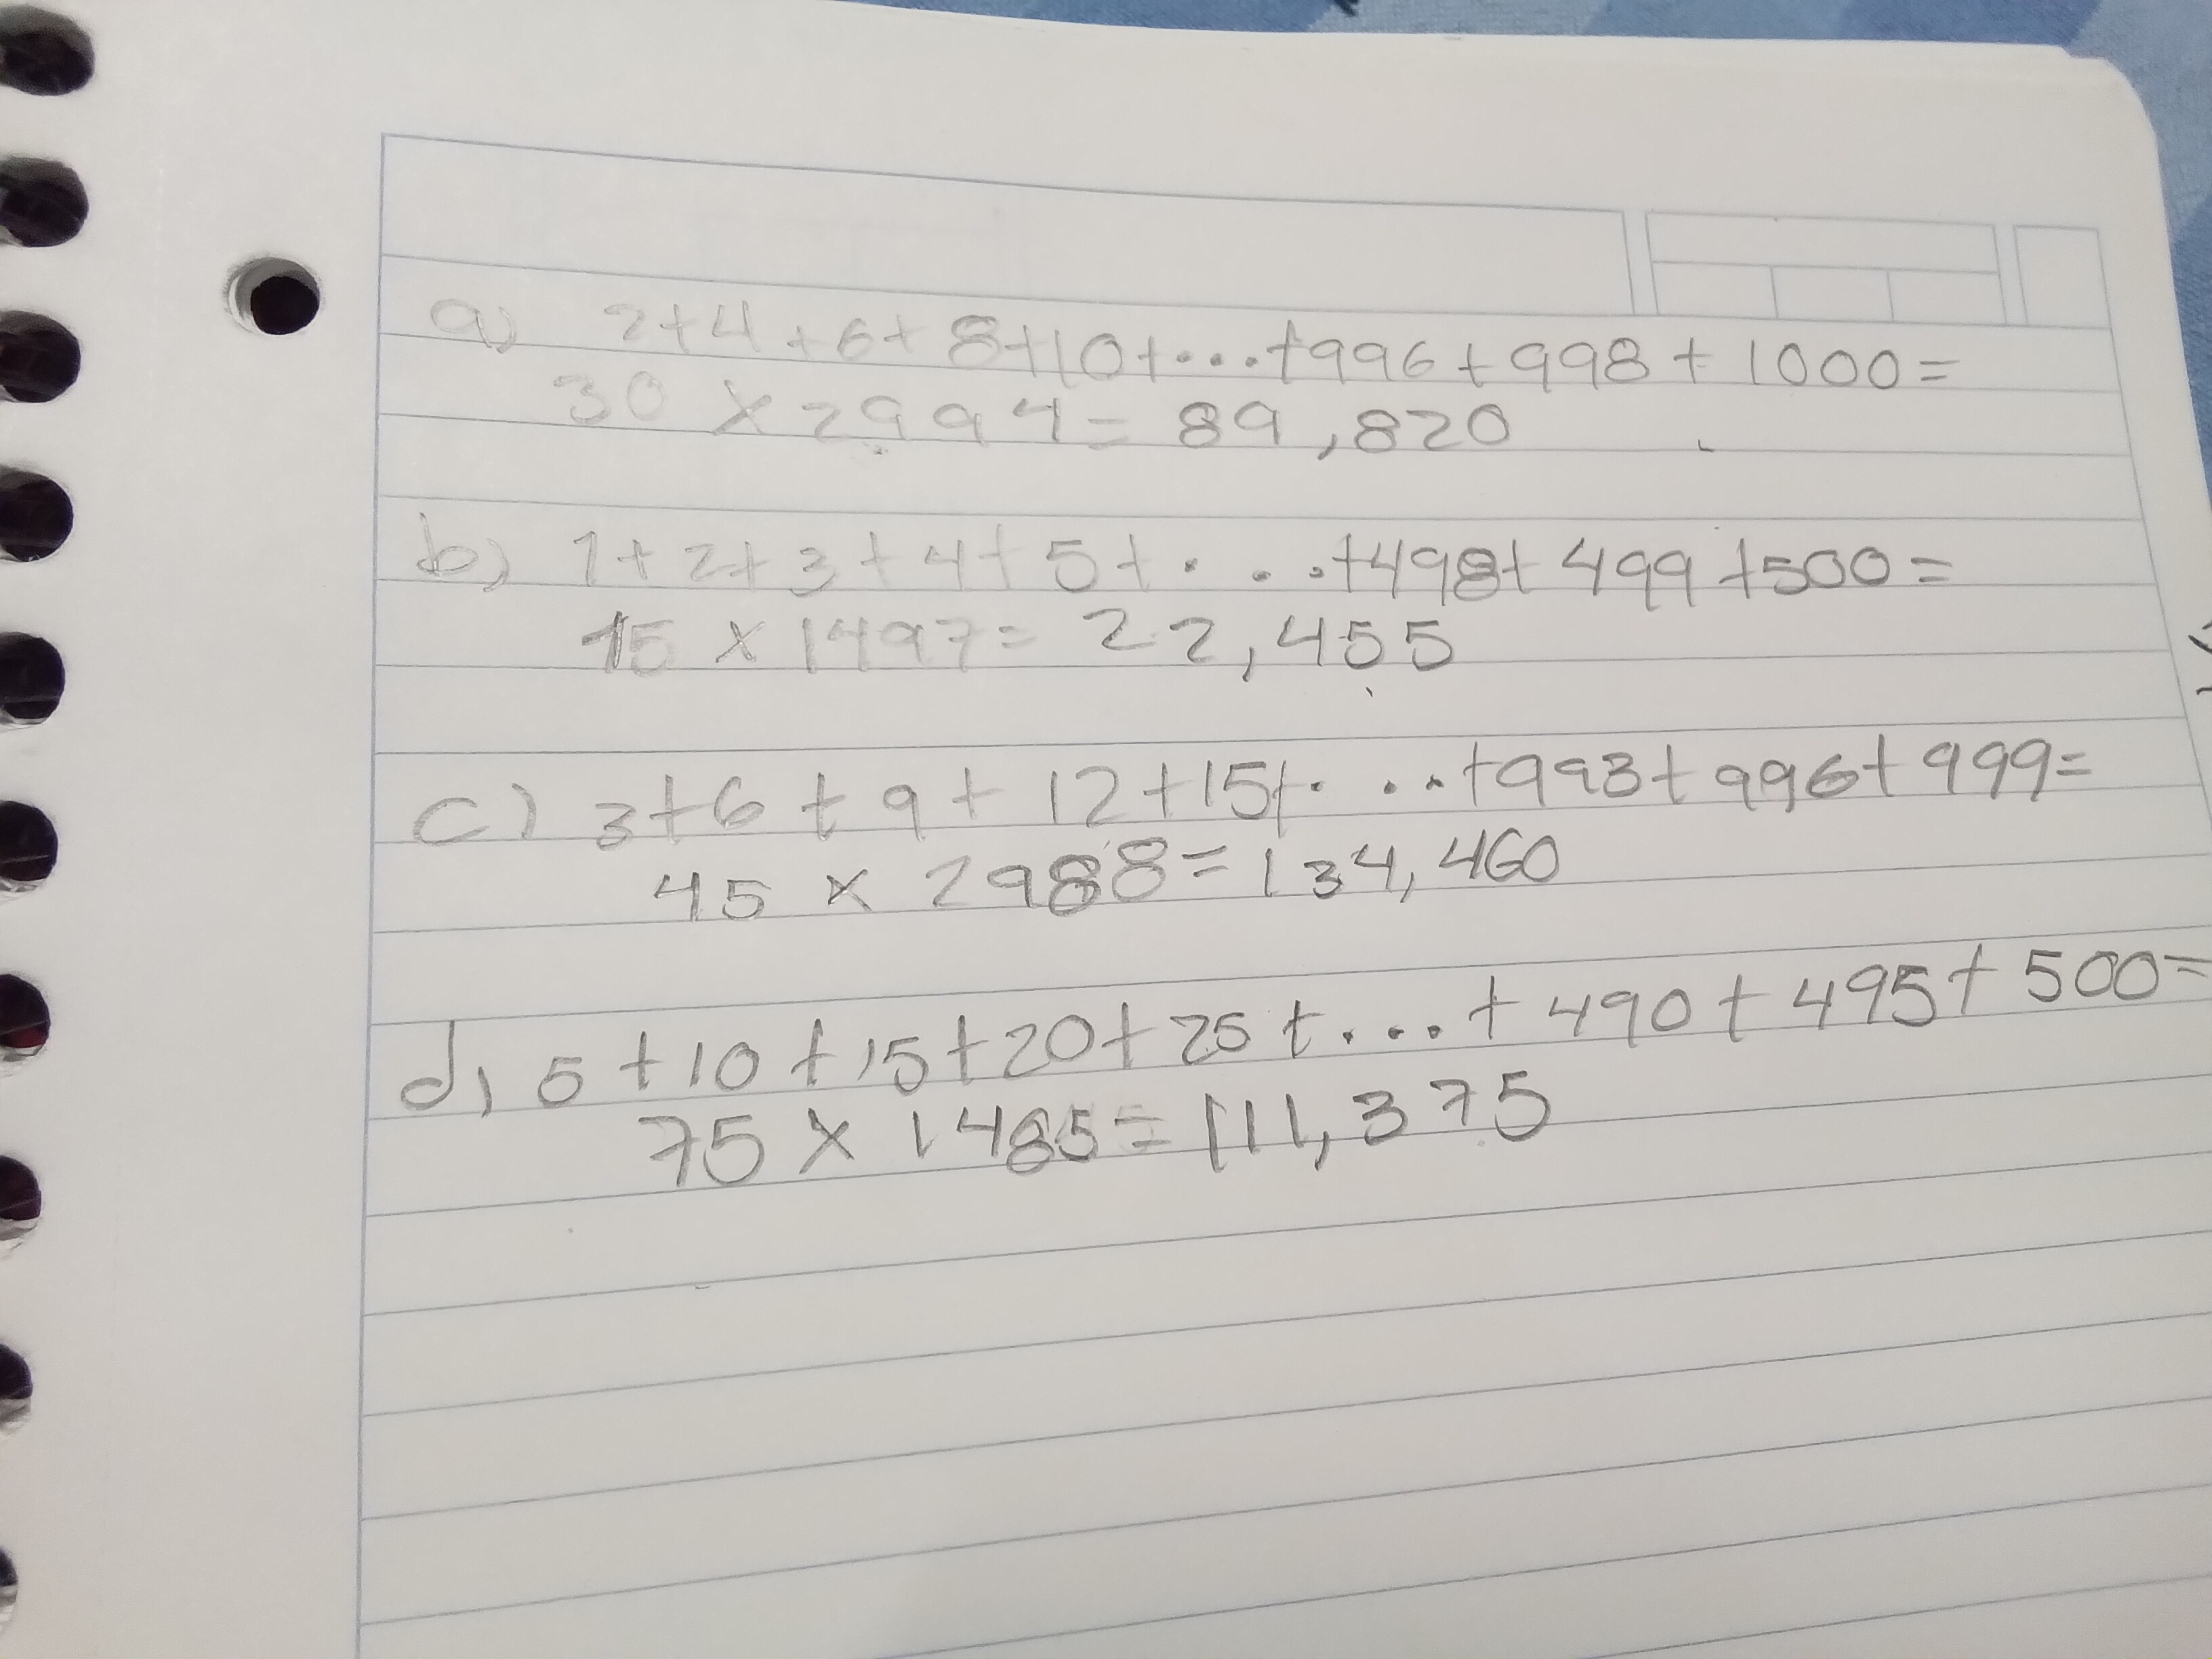 a) 2+4+6+8+10+...+996+998+1000=
30 x 2994= 89,820
b) 1+2+3+4+5+...+498+499+500=
15 x 1497= 22,455
c) 3+6+9+12+15+...+993+996+999=
45 x 2988=134,460
d) 5+10+15+20+25+...+490+495+500=
75 x 1485=111,375